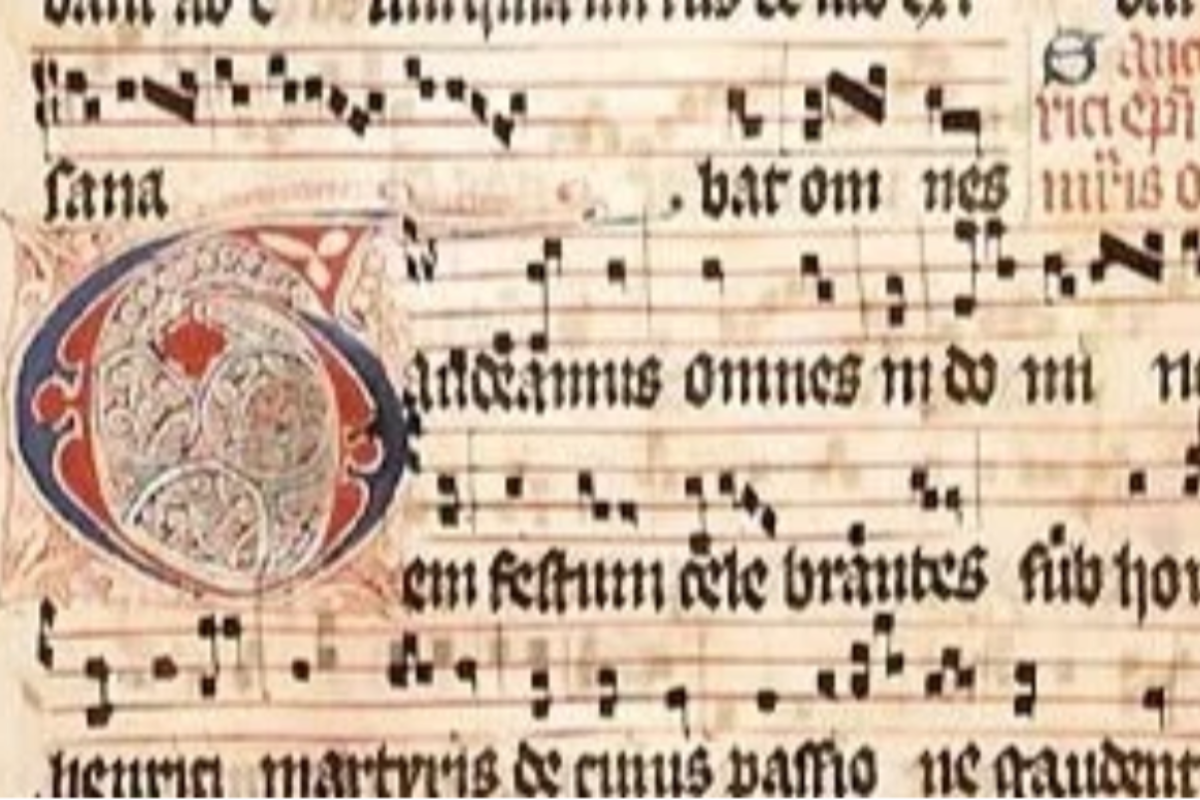 sana bat om nes
Gaudeamus omnes in do mi
em festum cele brantes sub hon
henrici martyris de cuius passio ne gaudent